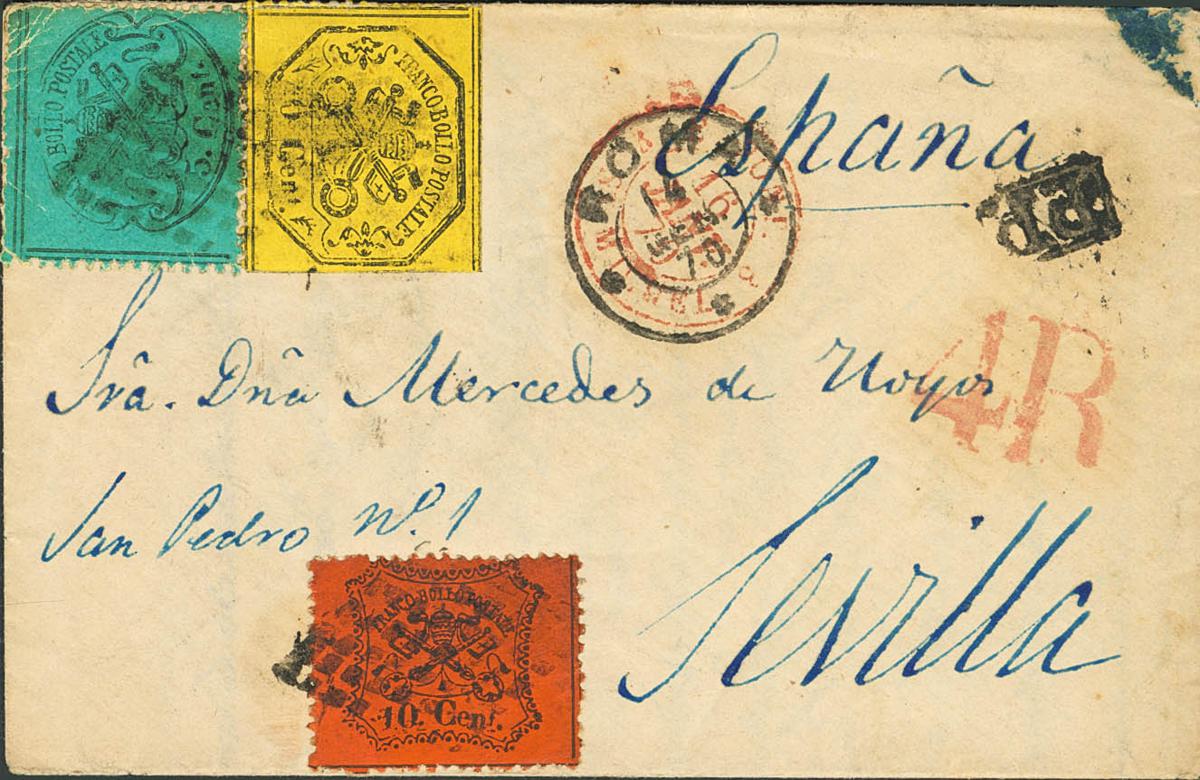 BOLLO POSTALE
5. Cent.
FRANCO BOLLO POSTALE
Cent.
ROMA
España
P.D.
4R
Srã. Dñã Mercedes de Hoyos
San Pedro Nº. 1
Sevilla
FRANCO BOLLO POSTALE
10 Cent.